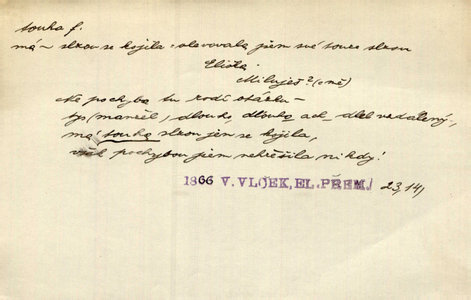 touha f.
má – slzou se kojila; olevovala jsem své touze slzou
Eliška
Miluješ? (= mě)
Ne pochyba tu rodí otázku –
tys (manžel), dlouho, dlouho, ach, dlel vzdálený,
má touha slzou jen se kojila,
však pochybou jsem nehřešila nikdy!
1866 V. VLČEK, EL. PŘEM. 23, 141